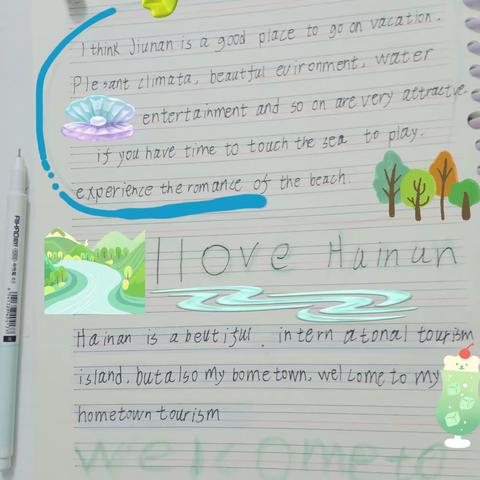 I think Jiunan is a good place to go on vacation.
Plesant climata, beautful evironment, water
entertainment and so on are very attractve.
if you have time to touch the sea to play.
experience the romance of the beach.
I love Hainan
Hainan is a beutiful. intern atonal tourism
island, but also my bometown, wel come to my
hometown tourism
Welcome to